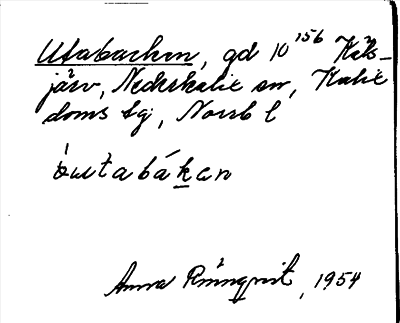 Utabacken, gd 10 156 Räk-
järv, Nederkalix sn, Kalix
doms tg, Norrb l
utabákan
Anna Rönnqvist, 1954